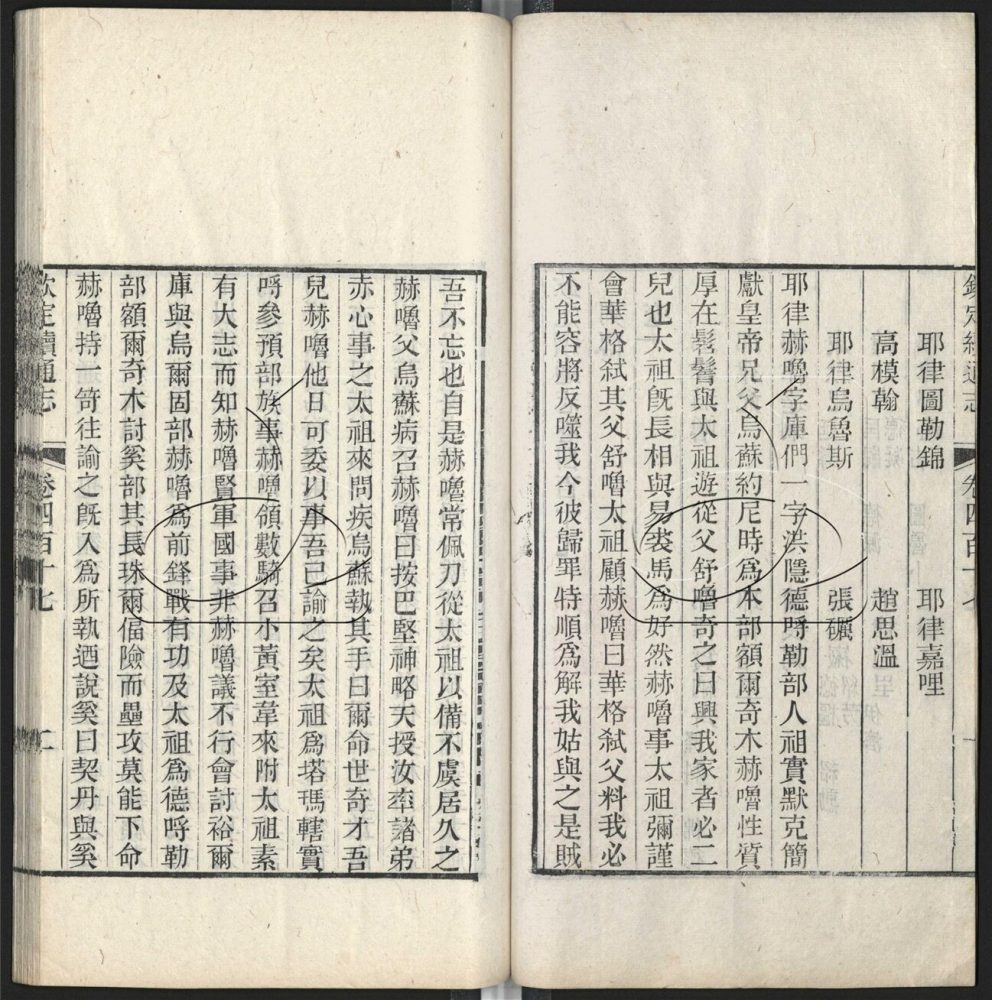 欽定續通志 卷四百十七 一
耶律圖勒錦 耶律嘉哩
高模翰 趙思溫
耶律烏魯斯 張礪
耶律赫嚕字庫們一字洪隱德哷勒部人祖實默克簡
獻皇帝兄父烏蘇約尼時爲本部額爾奇木赫嚕性質
厚在髫髻與太祖遊從父舒嚕奇之曰興我家者必二
兒也太祖旣長相與易裘馬爲好然赫嚕事太祖彌謹
會華格弑其父舒嚕太祖顧赫嚕曰華格弑父料我必
不能容將反噬我今彼歸罪特順爲解我姑與之是賊
吾不忘也自是赫嚕常佩刀從太祖以備不虞居久之
赫嚕父烏蘇病召赫嚕曰按巴堅神略天授汝率諸弟
赤心事之太祖來問疾烏蘇執其手曰爾命世奇才吾
兒赫嚕他日可委以事吾已諭之矣太祖爲塔瑪轄實
哷參預部族事赫嚕領數騎召小黃室韋來附太祖素
有大志而知赫嚕賢軍國事非赫嚕議不行會討裕爾
庫與烏爾固部赫嚕爲前鋒戰有功及太祖爲德哷勒
部額爾奇木討奚部其長珠爾偪險而壘攻莫能下命
赫嚕持一笴往諭之旣入爲所執迺說奚曰契丹與奚
欽定續通志 卷四百十七 二